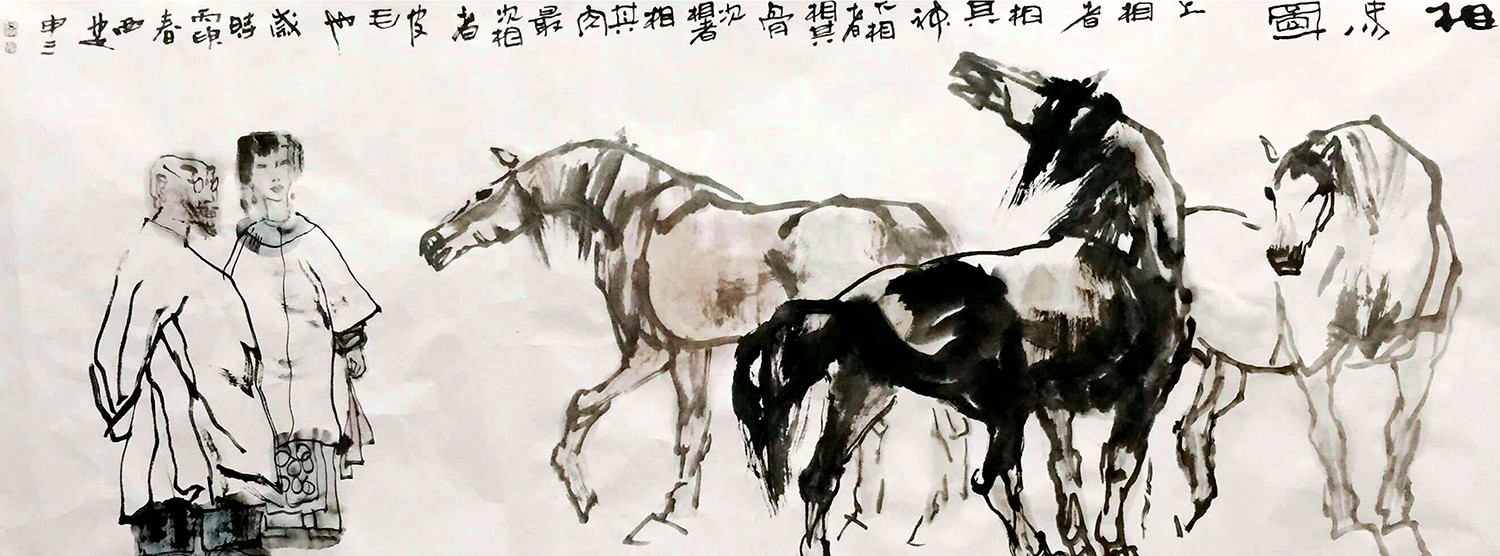 相馬圖 上相者相其神 相者相其骨 次相者相其肉 最次相者皮毛也 歲時 春 西楚 申三